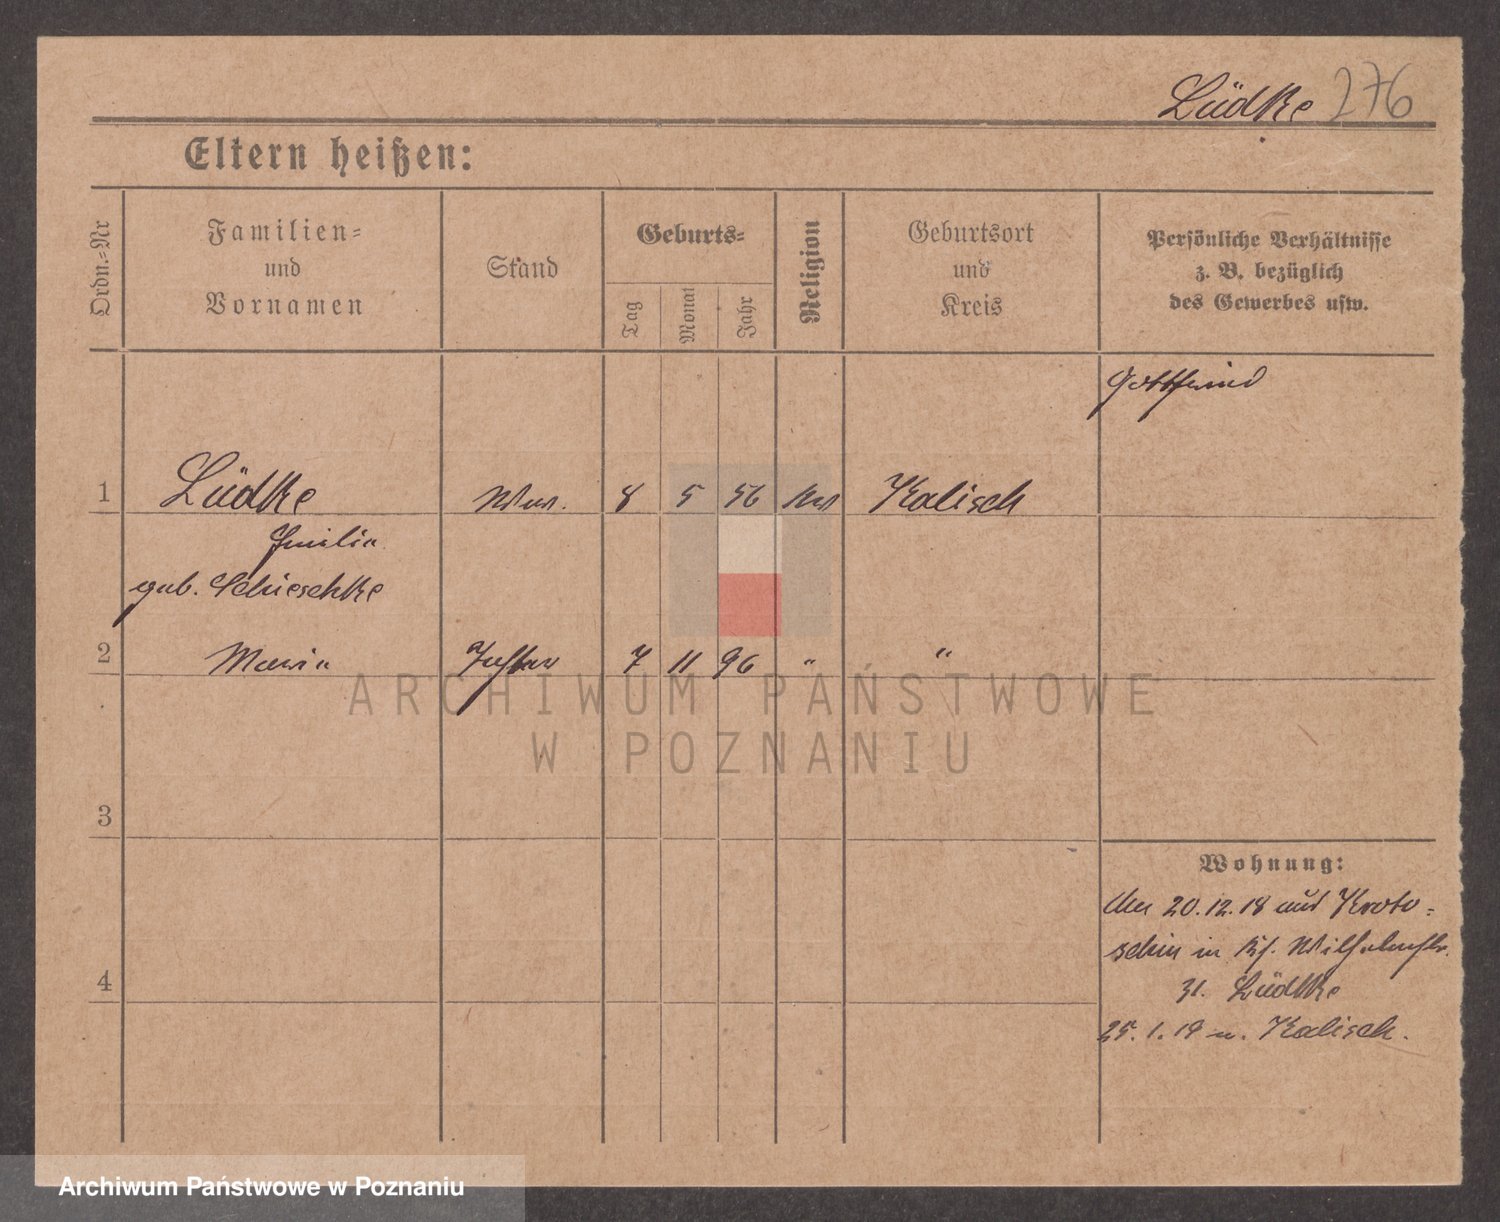 Lüdke 276
Eltern heißen:
Ordn.-Nr
Familien-
und
Vornamen
Stand
Geburts-
Tag
Monat
Jahr
Religion
Geburtsort
und
Kreis
Persönliche Verhältnisse
z. B. bezüglich
des Gewerbes usw.
Gottfried
1 Lüdke Ww. 8 5 56 Kalisch
Emilie
geb. Schieschke
2 Maria Tochter 7 11 96 " "
3
4
Wohnung:
20.12.18 aus Kroto-
schin in Wilhelmstr.
31. Lüdke
25.1.19 n. Kalisch.
ARCHIWUM PAŃSTWOWE
W POZNANIU
Archiwum Państwowe w Poznaniu